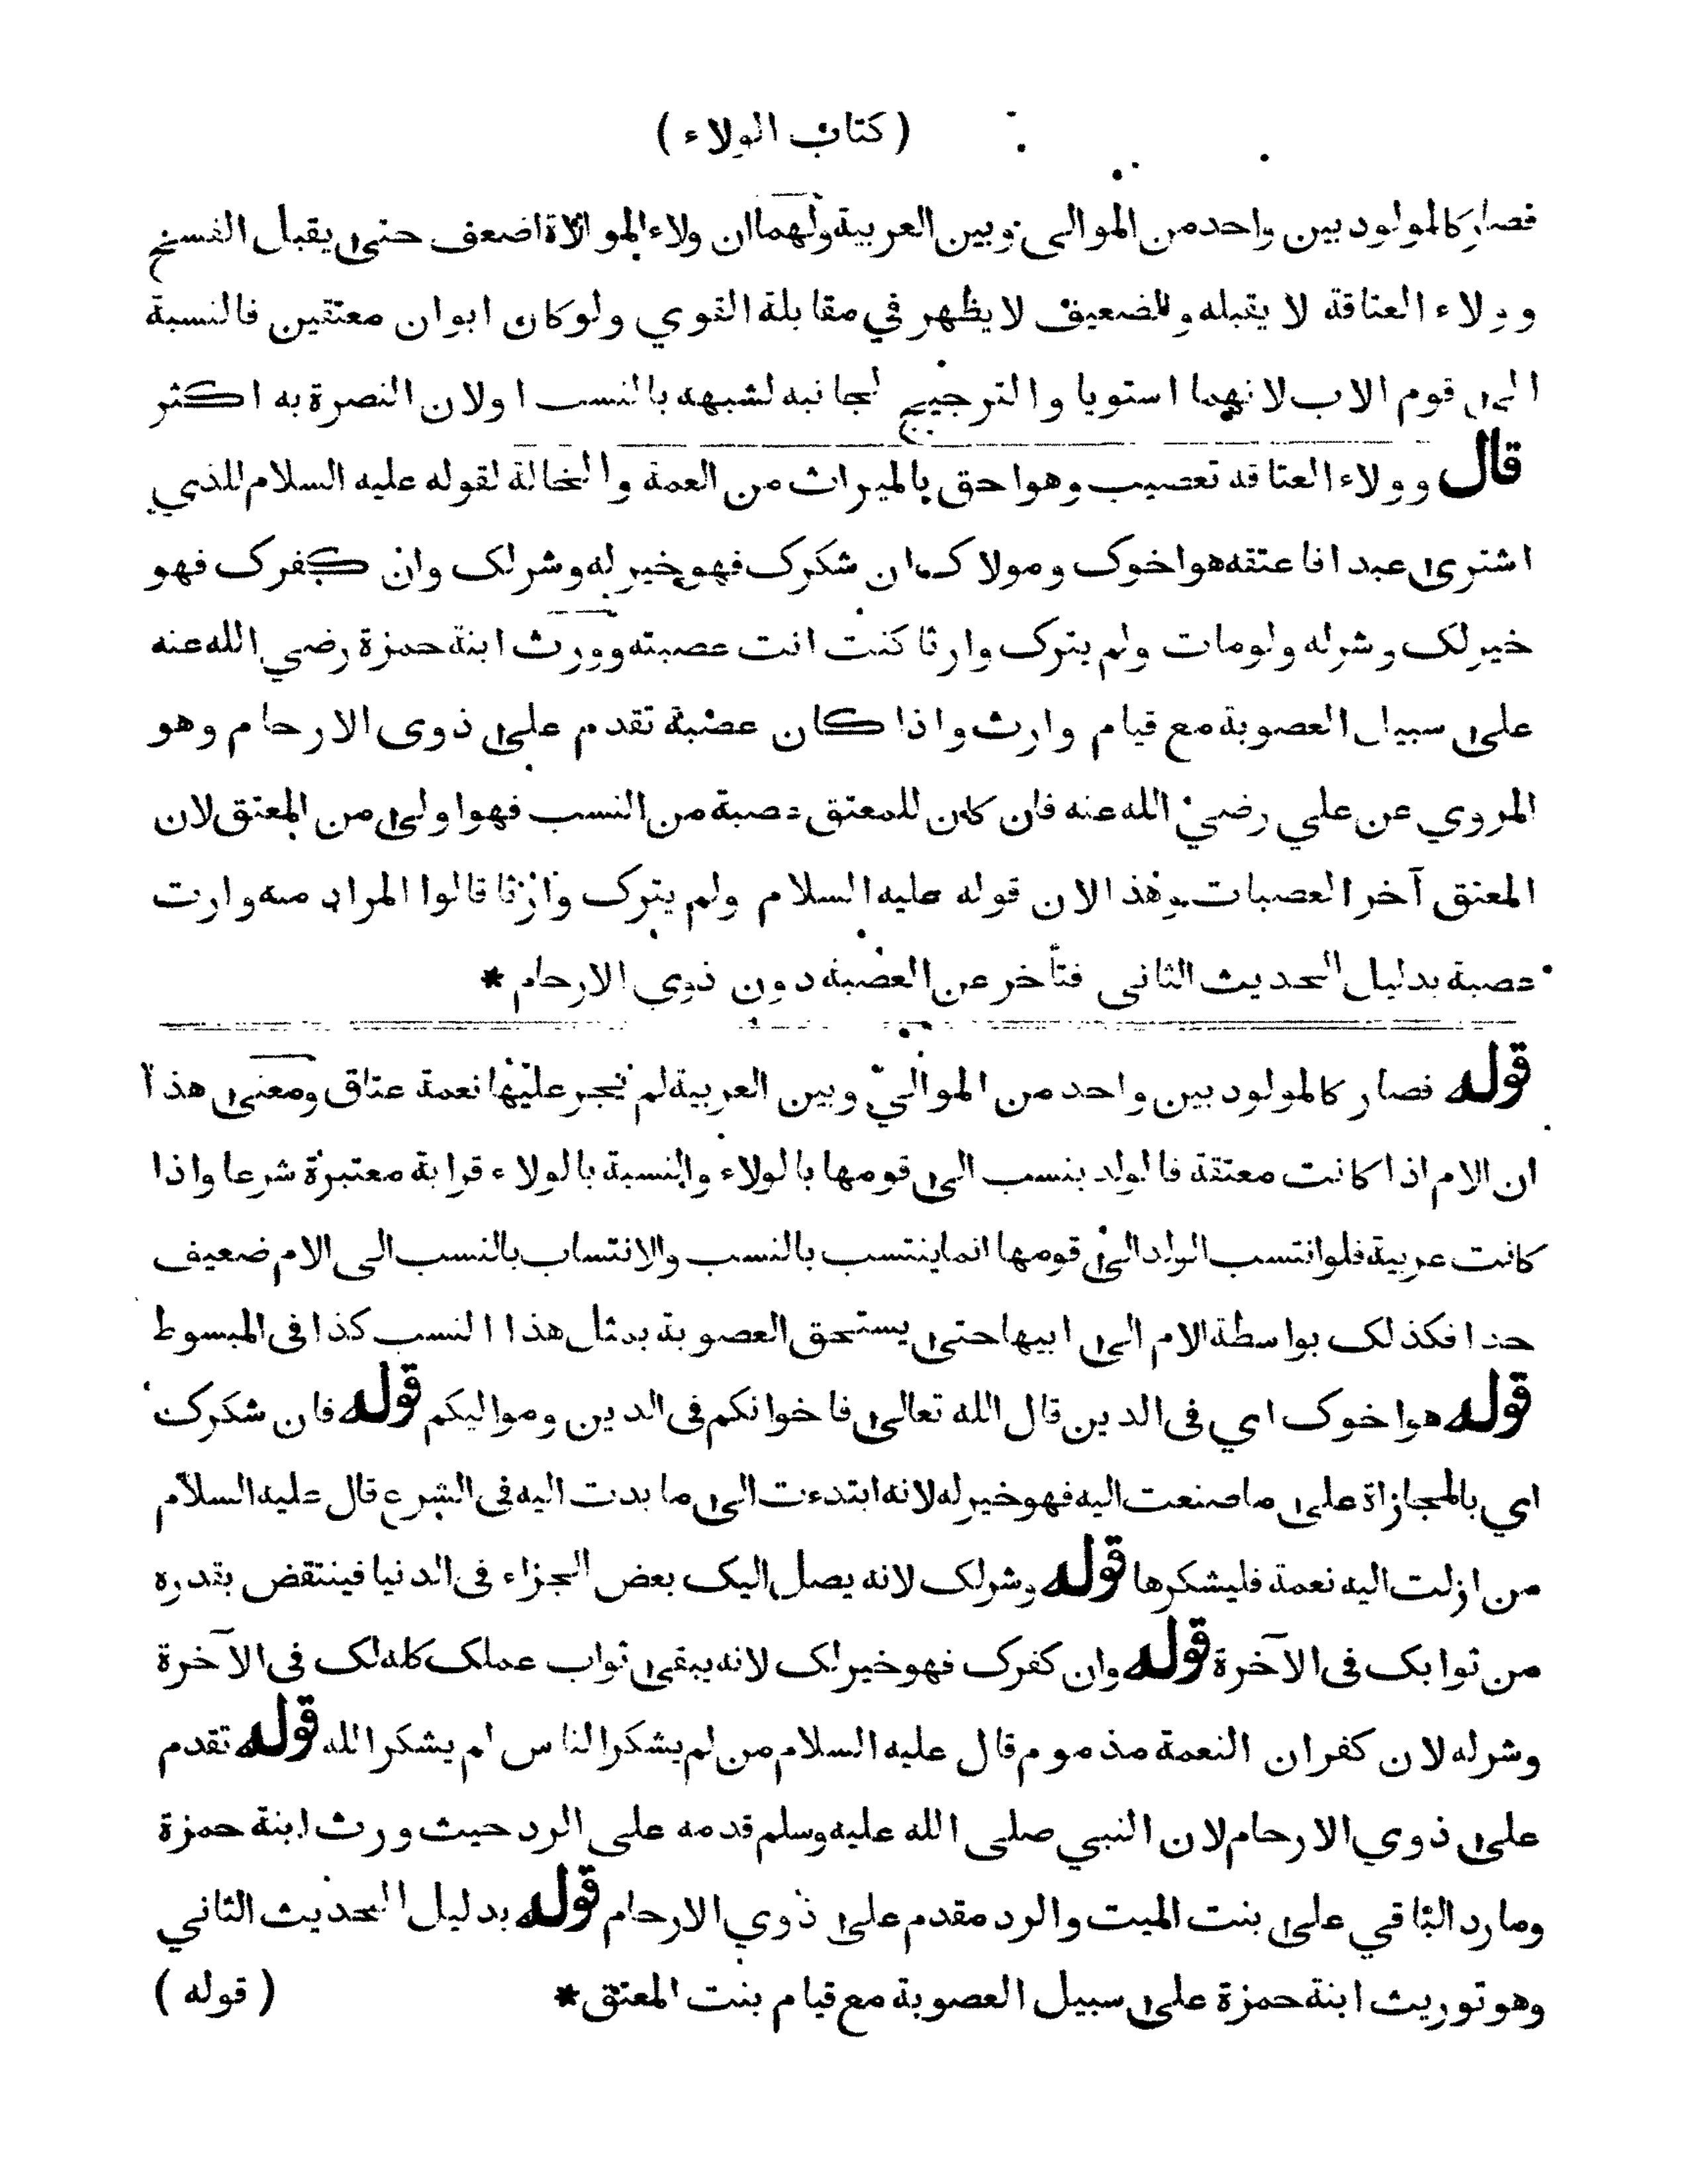 ( كتاب الولاء )
فصار كالمولود بين واحد من الموالي وبين العربية ولهما ان ولاء الموالاة اضعف حتى يقبل الفسخ
وولاء العتاقة لا يقبله والضعيف لا يظهر في مقابلة القوي ولو كان ابوان معتقين فالنسبة
الى قوم الاب لانهما استويا والترجيح لجانبه لشبهه بالنسب او لان النصرة به اكثر
قال وولاء العتاقه تعصيب وهو احق بالميراث من العمة والخالة لقوله عليه السلام للذي
اشترى عبدا فاعتقه هو اخوك ومولاك ان شكرك فهو خير له وشر لك وان كفرك فهو
خير لك وشر له ولو مات ولم يترك وارثا كنت انت عصبته وورث ابنة حمزة رضي الله عنه
على سبيل العصوبة مع قيام وارث واذا كان عصبة تقدم على ذوى الارحام وهو
المروي عن علي رضي الله عنه فان كان للمعتق عصبة من النسب فهو اولى من المعتق لان
المعتق آخر العصبات وهذا لان قوله عليه السلام ولم يترك وارثا قالوا المراد منه وارث
عصبة بدليل الحديث الثاني فتأخر عن العصبة دون ذوي الارحام *
قوله فصار كالمولود بين واحد من الموالي وبين العربية لم تجر عليها نعمة عتاق ومعنى هذا
ان الام اذا كانت معتقة فالولد ينسب الى قومها بالولاء والنسبة بالولاء قرابة معتبرة شرعا واذا
كانت عربية فلو انتسب الولد الى قومها انما ينتسب بالنسب والانتساب بالنسب الى الام ضعيف
جدا فكذلك بواسطة الام الى ابيها حتى يستحق العصوبة بمثل هذا النسب كذا فى المبسوط
قوله هو اخوك اي فى الدين قال الله تعالى فاخوانكم فى الدين ومواليكم قوله فان شكرك
اي بالمجازاة على ما صنعت اليه فهو خير له لانه ابتدءت الى ما بدت اليه فى الشرع قال عليه السلام
من ازلت اليه نعمة فليشكرها قوله وشر لك لانه يصل اليك بعض الجزاء فى الدنيا فينتقض بقدره
من ثوابك فى الآخرة قوله وان كفرك فهو خير لك لانه يبقى ثواب عملك كله لك فى الآخرة
وشر له لان كفران النعمة مذموم قال عليه السلام من لم يشكر الناس لم يشكر الله قوله تقدم
على ذوي الارحام لان النبي صلى الله عليه وسلم قدمه على الرد حيث ورث ابنة حمزة
وما رد الباقي على بنت الميت والرد مقدم على ذوي الارحام قوله بدليل الحديث الثاني
وهو توريث ابنة حمزة على سبيل العصوبة مع قيام بنت المعتق * ( قوله )